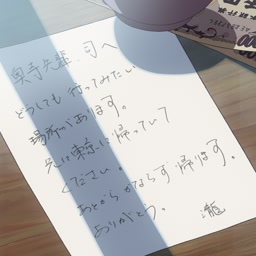 奥寺先輩、司へ
どうしても行ってみたい
場所があります。
先に東京に帰っていて
ください。
あとからかならず帰ります。
ありがとう。
瀧